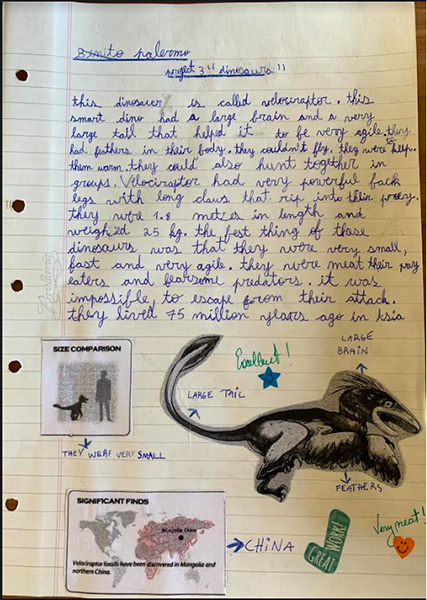 Benito palermo
project 3rd dinosaurs !!
this dinosaur is called velociraptor. this
smart dino had a large brain and a very
large tail that helped it to be very agile. they
had feathers in their body. they couldn't fly, they were keep
them warm. they could also hunt together in
groups. Velociraptor had very powerful back
legs with long claws that rip into their prey.
they were 1.8 metres in length and
weighed 25 kg. the best thing of these
dinosaurs was that they were very small,
fast and very agile. they were meat their prey
eaters and fearsome predators. it was
impossible to escape from their attack.
they lived 75 million years ago in Asia
SIZE COMPARISON
THEY WERE VERY SMALL
Excellent!
LARGE BRAIN
LARGE TAIL
FEATHERS
SIGNIFICANT FINDS
Mongolia China
Velociraptor fossils have been discovered in Mongolia and
northern China.
CHINA
GREAT WORK!
Very neat!